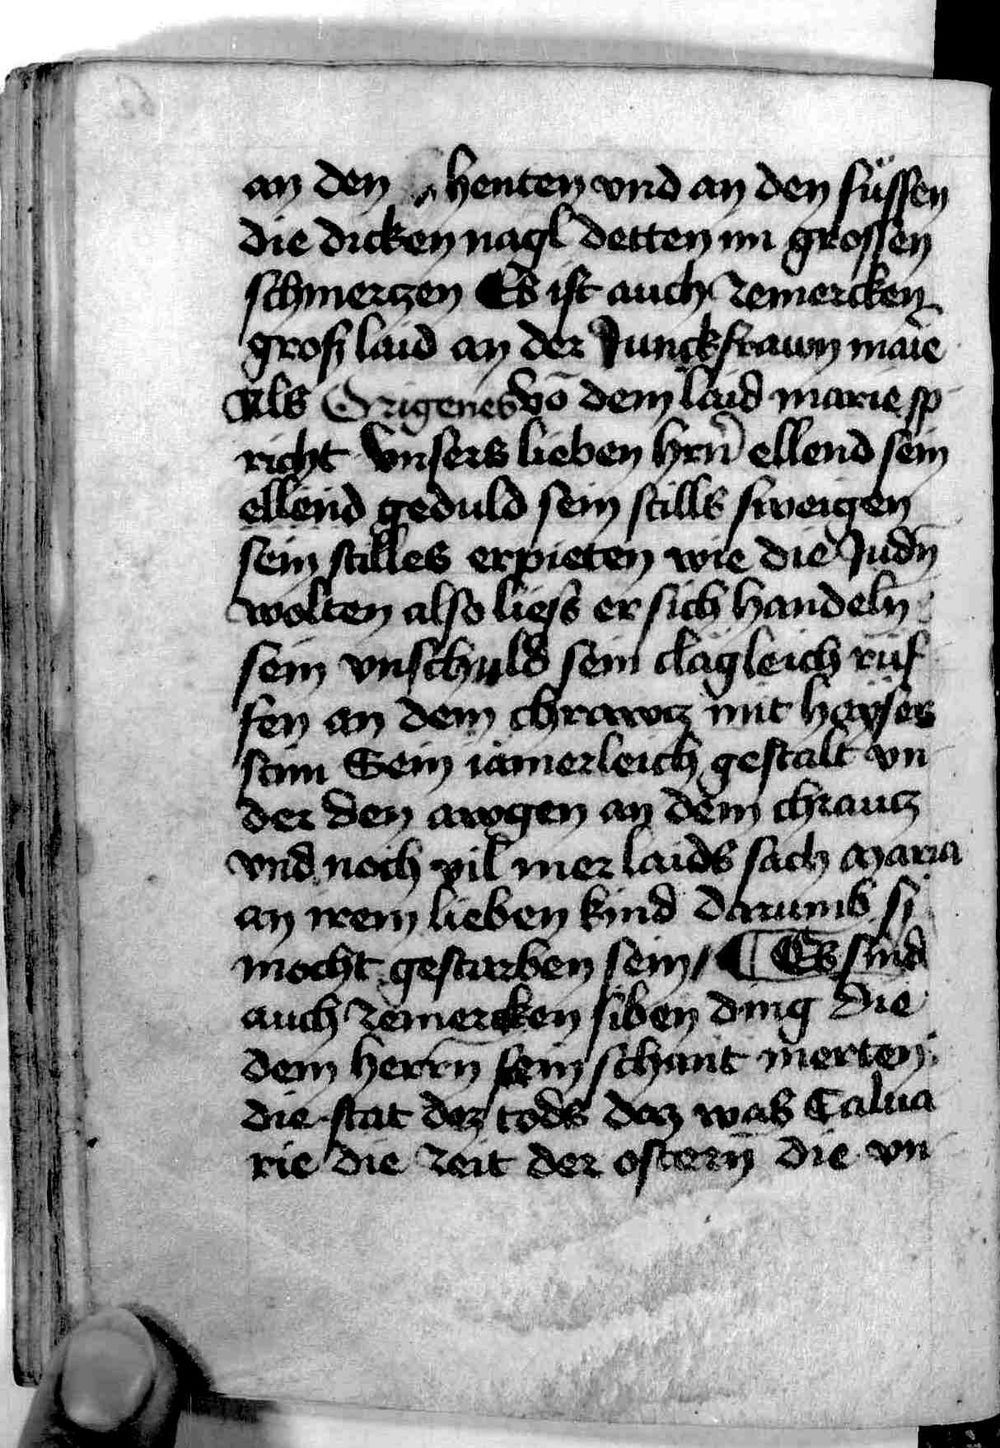 an den henten vnd an den füssen
die dicken nagl detten im grossen
schmertzen Es ist auch zemercken
groß laid an der Junckfrawn marie
Als Origenes vō dem laid marie sp
richt Vnsers lieben hrn̄ ellend sein
ellend geduld sein stills sweigen
sein stilles erpieten wie die Judn̄
wolten also liess er sich handeln
sein vnschuld sein clägleich rüf
fen an dem chrawtz mit hayser
stim Sein iamerleich gestalt vn
der den awgen an dem chrautz
vnd noch vil mer laids sach Maria
an irem lieben kind darumb si
mocht gestarben sein / ¶ Es sind
auch zemercken siben ding die
dem herrn̄ sein schant merten
die stat dez tods daz was Calua
rie die zeit der ostern̄ die vn